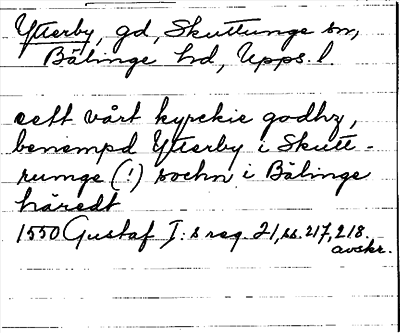 Ytterby, gd, Skuttunge sn,
Bälinge hd, Upps. l.
eett vårt kyrckie godhz,
benempd Ytterby i Skutt-
rumge (!) sochn i Bälinge
häredt
1550 Gustaf I:s reg. 21, ss. 217, 218.
avskr.